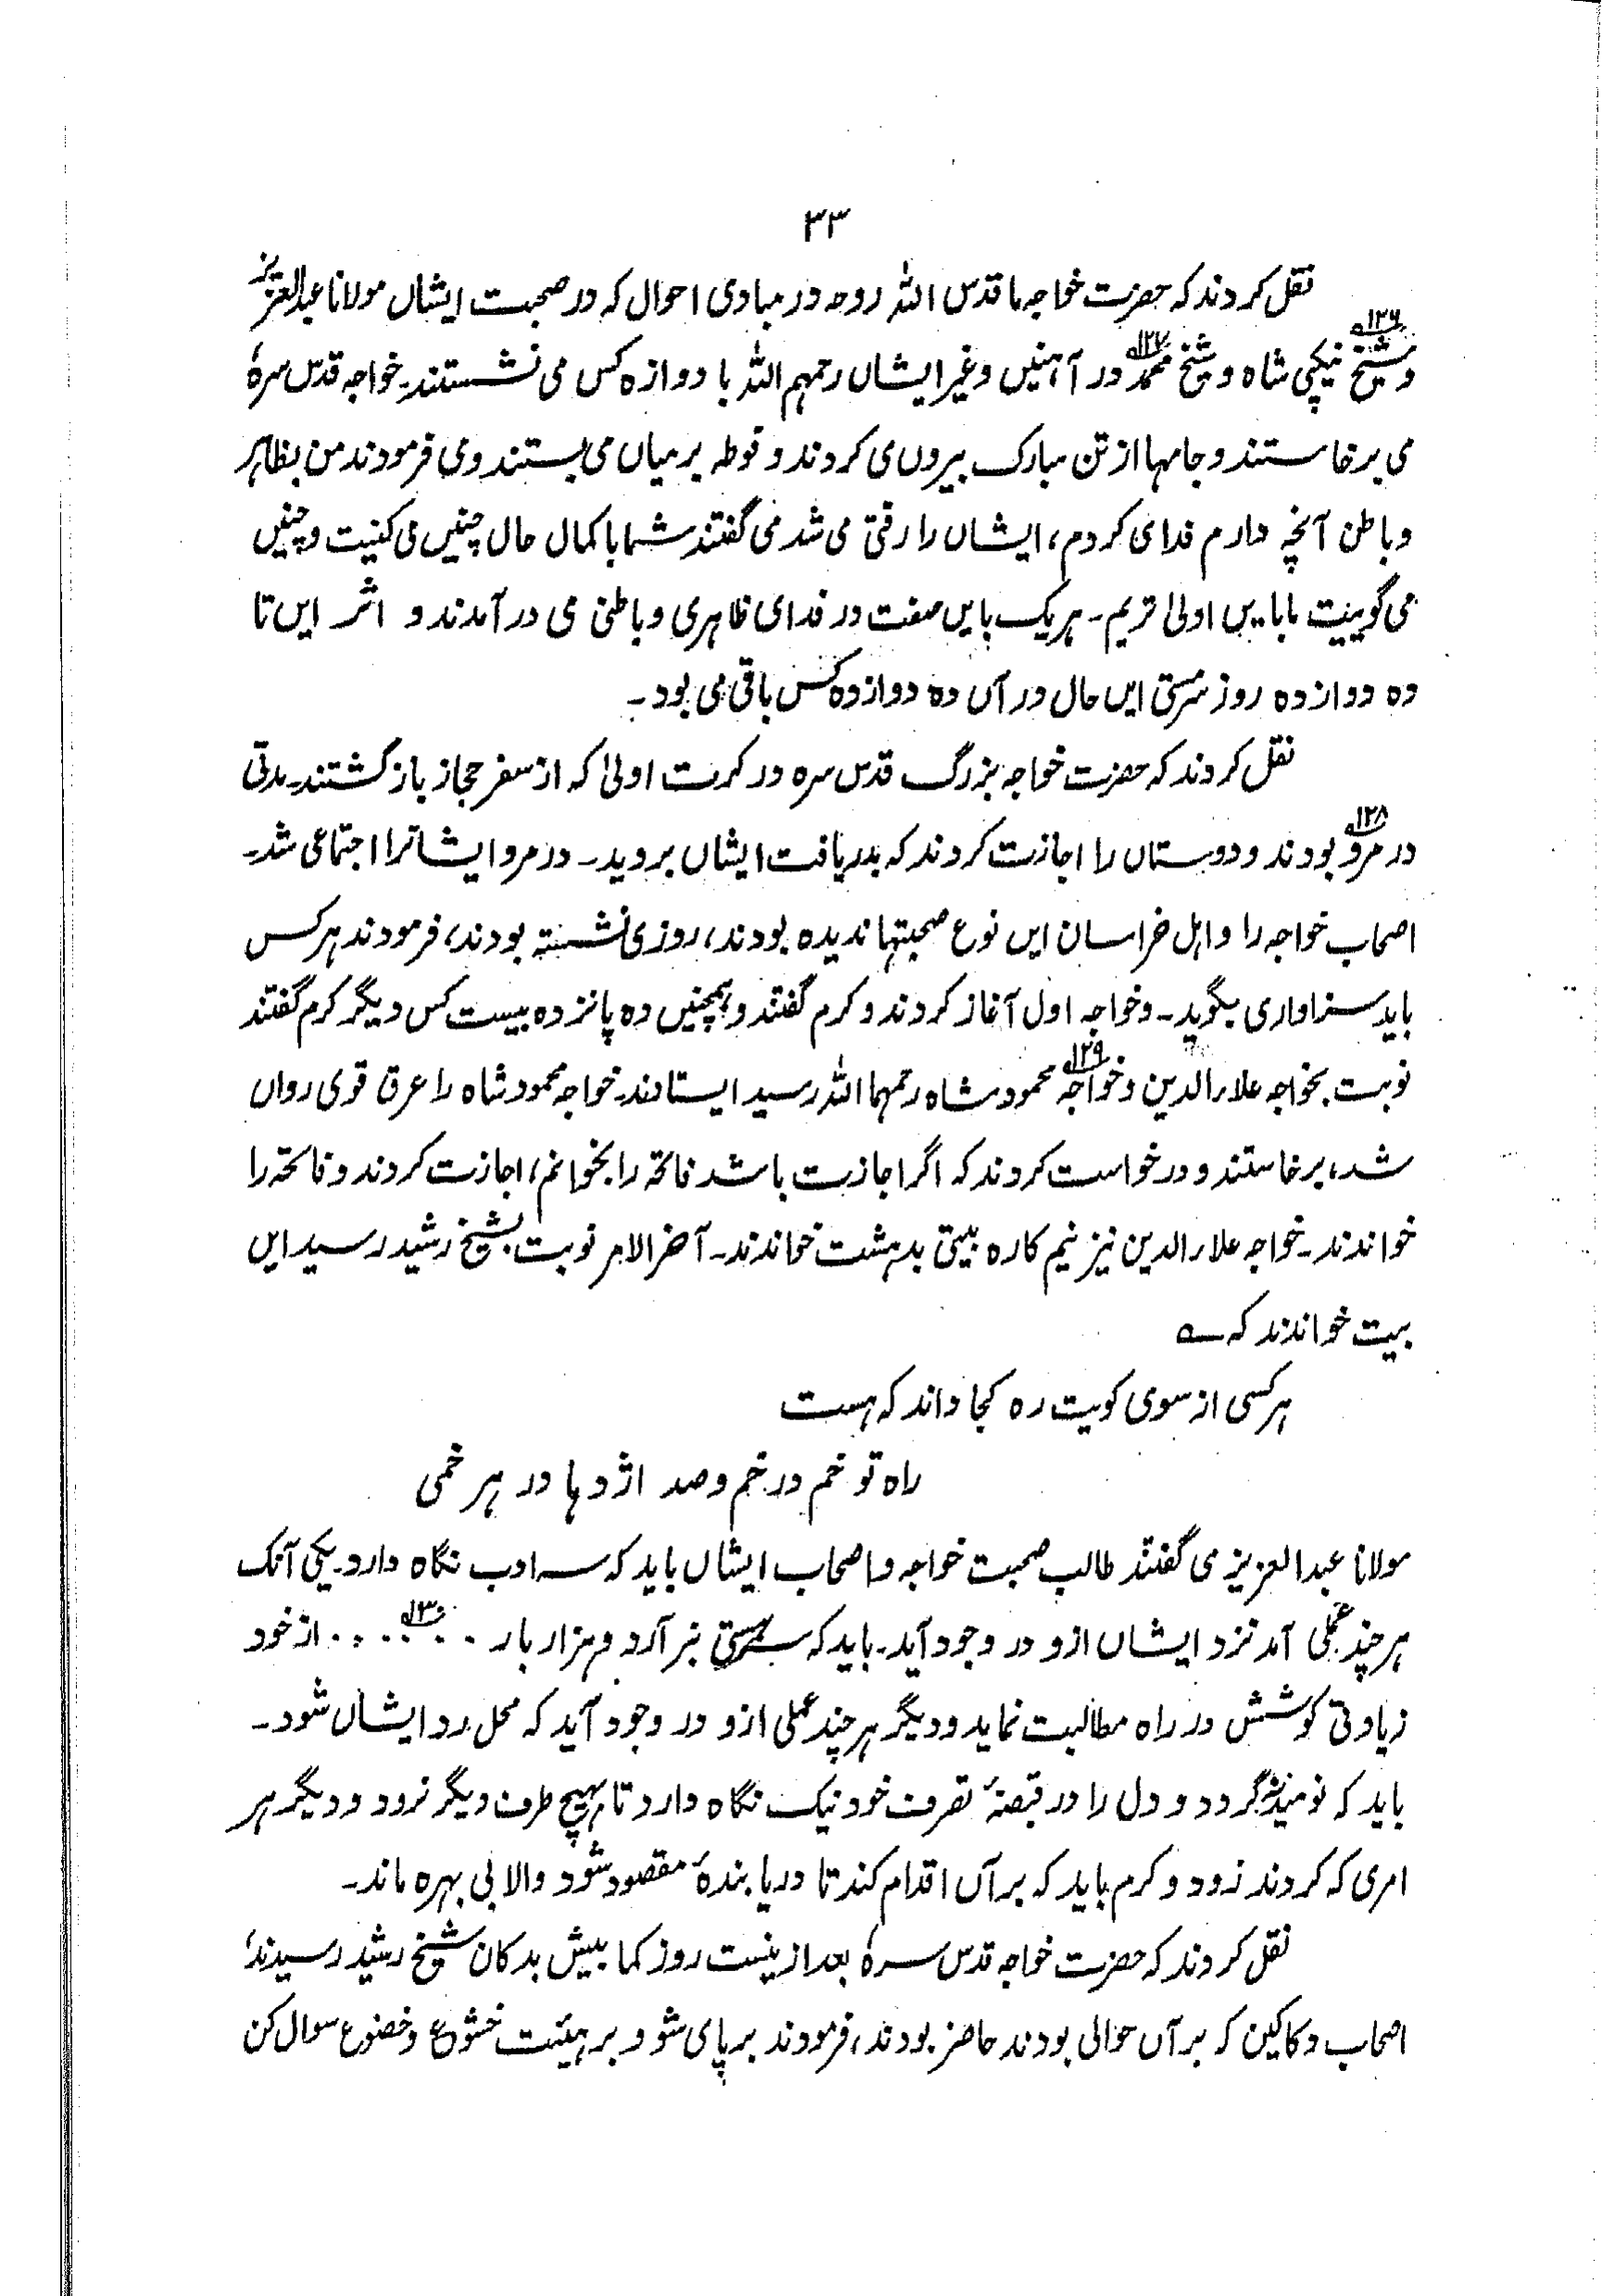 ۳۳
نقل کردند که حضرت خواجه ما قدس الله روحه در مبادی احوال که در صحبت ایشاں مولانا عبدالعزیز
و شیخ<sup>۱۲۶</sup> نیکپی شاه و شیخ محمد<sup>۱۲۷</sup> در آہنیں و غیر ایشاں رحمہم اللہ با دوازہ کس می نشستند۔ خواجہ قدس سرہٗ
می برخاستند و جامہا از تن مبارک بیروں می کردند و فوطہ بر میاں می بستند و می فرمودند من بظاہر
و باطن آنچہ دارم فدای کردم، ایشاں را رقتی می شد می گفتند شما با کمال حال چنیں می کنیت و چنیں
می گوییت ما بایں اولیٰ تریم۔ ہر یک بایں صفت در فدای ظاہری و باطنی می در آمدند و اثر ایں تا
ده دوازده روز مستی ایں حال در آں ده دوازده کس باقی می بود۔
نقل کردند کہ حضرت خواجہ بزرگ قدس سرہ در کرت اولیٰ کہ از سفر حجاز باز گشتند۔ مدتی
در مرو<sup>۱۲۸</sup> بودند و دوستاں را اجازت کردند کہ بدریافت ایشاں بروید۔ در مرو ایشانرا اجتماعی شد۔
اصحاب خواجہ را و اہل خراسان ایں نوع صحبتہا ندیدہ بودند، روزی نشستہ بودند، فرمودند ہر کس
باید سزاواری بگوید۔ و خواجہ اول آغاز کردند و کرم گفتند و ہمچنیں ده پانزده بیست کس دیگر کرم گفتند
نوبت بخواجہ علاء الدین و خواجہ<sup>۱۲۹</sup> محمود شاہ رحمہما اللہ رسید ایستادند۔ خواجہ محمود شاہ را عرق قوی رواں
شد، برخاستند و درخواست کردند کہ اگر اجازت باشد فاتحہ را بخوانم، اجازت کردند و فاتحہ را
خواندند۔ خواجہ علاء الدین نیز نیم کارہ بیتی بدہشت خواندند۔ آخر الامر نوبت بشیخ رشید رسید ایں
بیت خواندند کہ ؎
ہر کسی از سوی کویت رہ کجا داند کہ ہست
راہ تو خم در خم و صد اژدہا در ہر خمی
مولانا عبدالعزیز می گفتند طالب صحبت خواجہ و اصحاب ایشاں باید کہ سہ ادب نگاہ دارد۔ یکی آنک
ہر چند عملی آمد نزد ایشاں ازو در وجود آید۔ باید کہ بر آرد و ہزار بار . . . . . .<sup>۱۳۰</sup> از خود
زیادتی کوشش در راہ مطالبت نماید و دیگر ہر چند عملی ازو در وجود آید کہ محل رد ایشاں شود۔
باید کہ نومید نگردد و دل را در قبضۂ تصرف خود نیک نگاہ دارد تا بہیچ طرف دیگر نرود و دیگر ہر
امری کہ کردند زود و کرم باید کہ برآں اقدام کند تا دریابندۂ مقصود شود والا بی بہرہ ماند۔
نقل کردند کہ حضرت خواجہ قدس سرہٗ بعد از بیست روز کما بیش بدکان شیخ رشید رسیدند،
اصحاب دکاکین کہ برآں حوالی بودند حاضر بودند، فرمودند بر پای شو و بر ہیئت خشوع و خضوع سوال کن